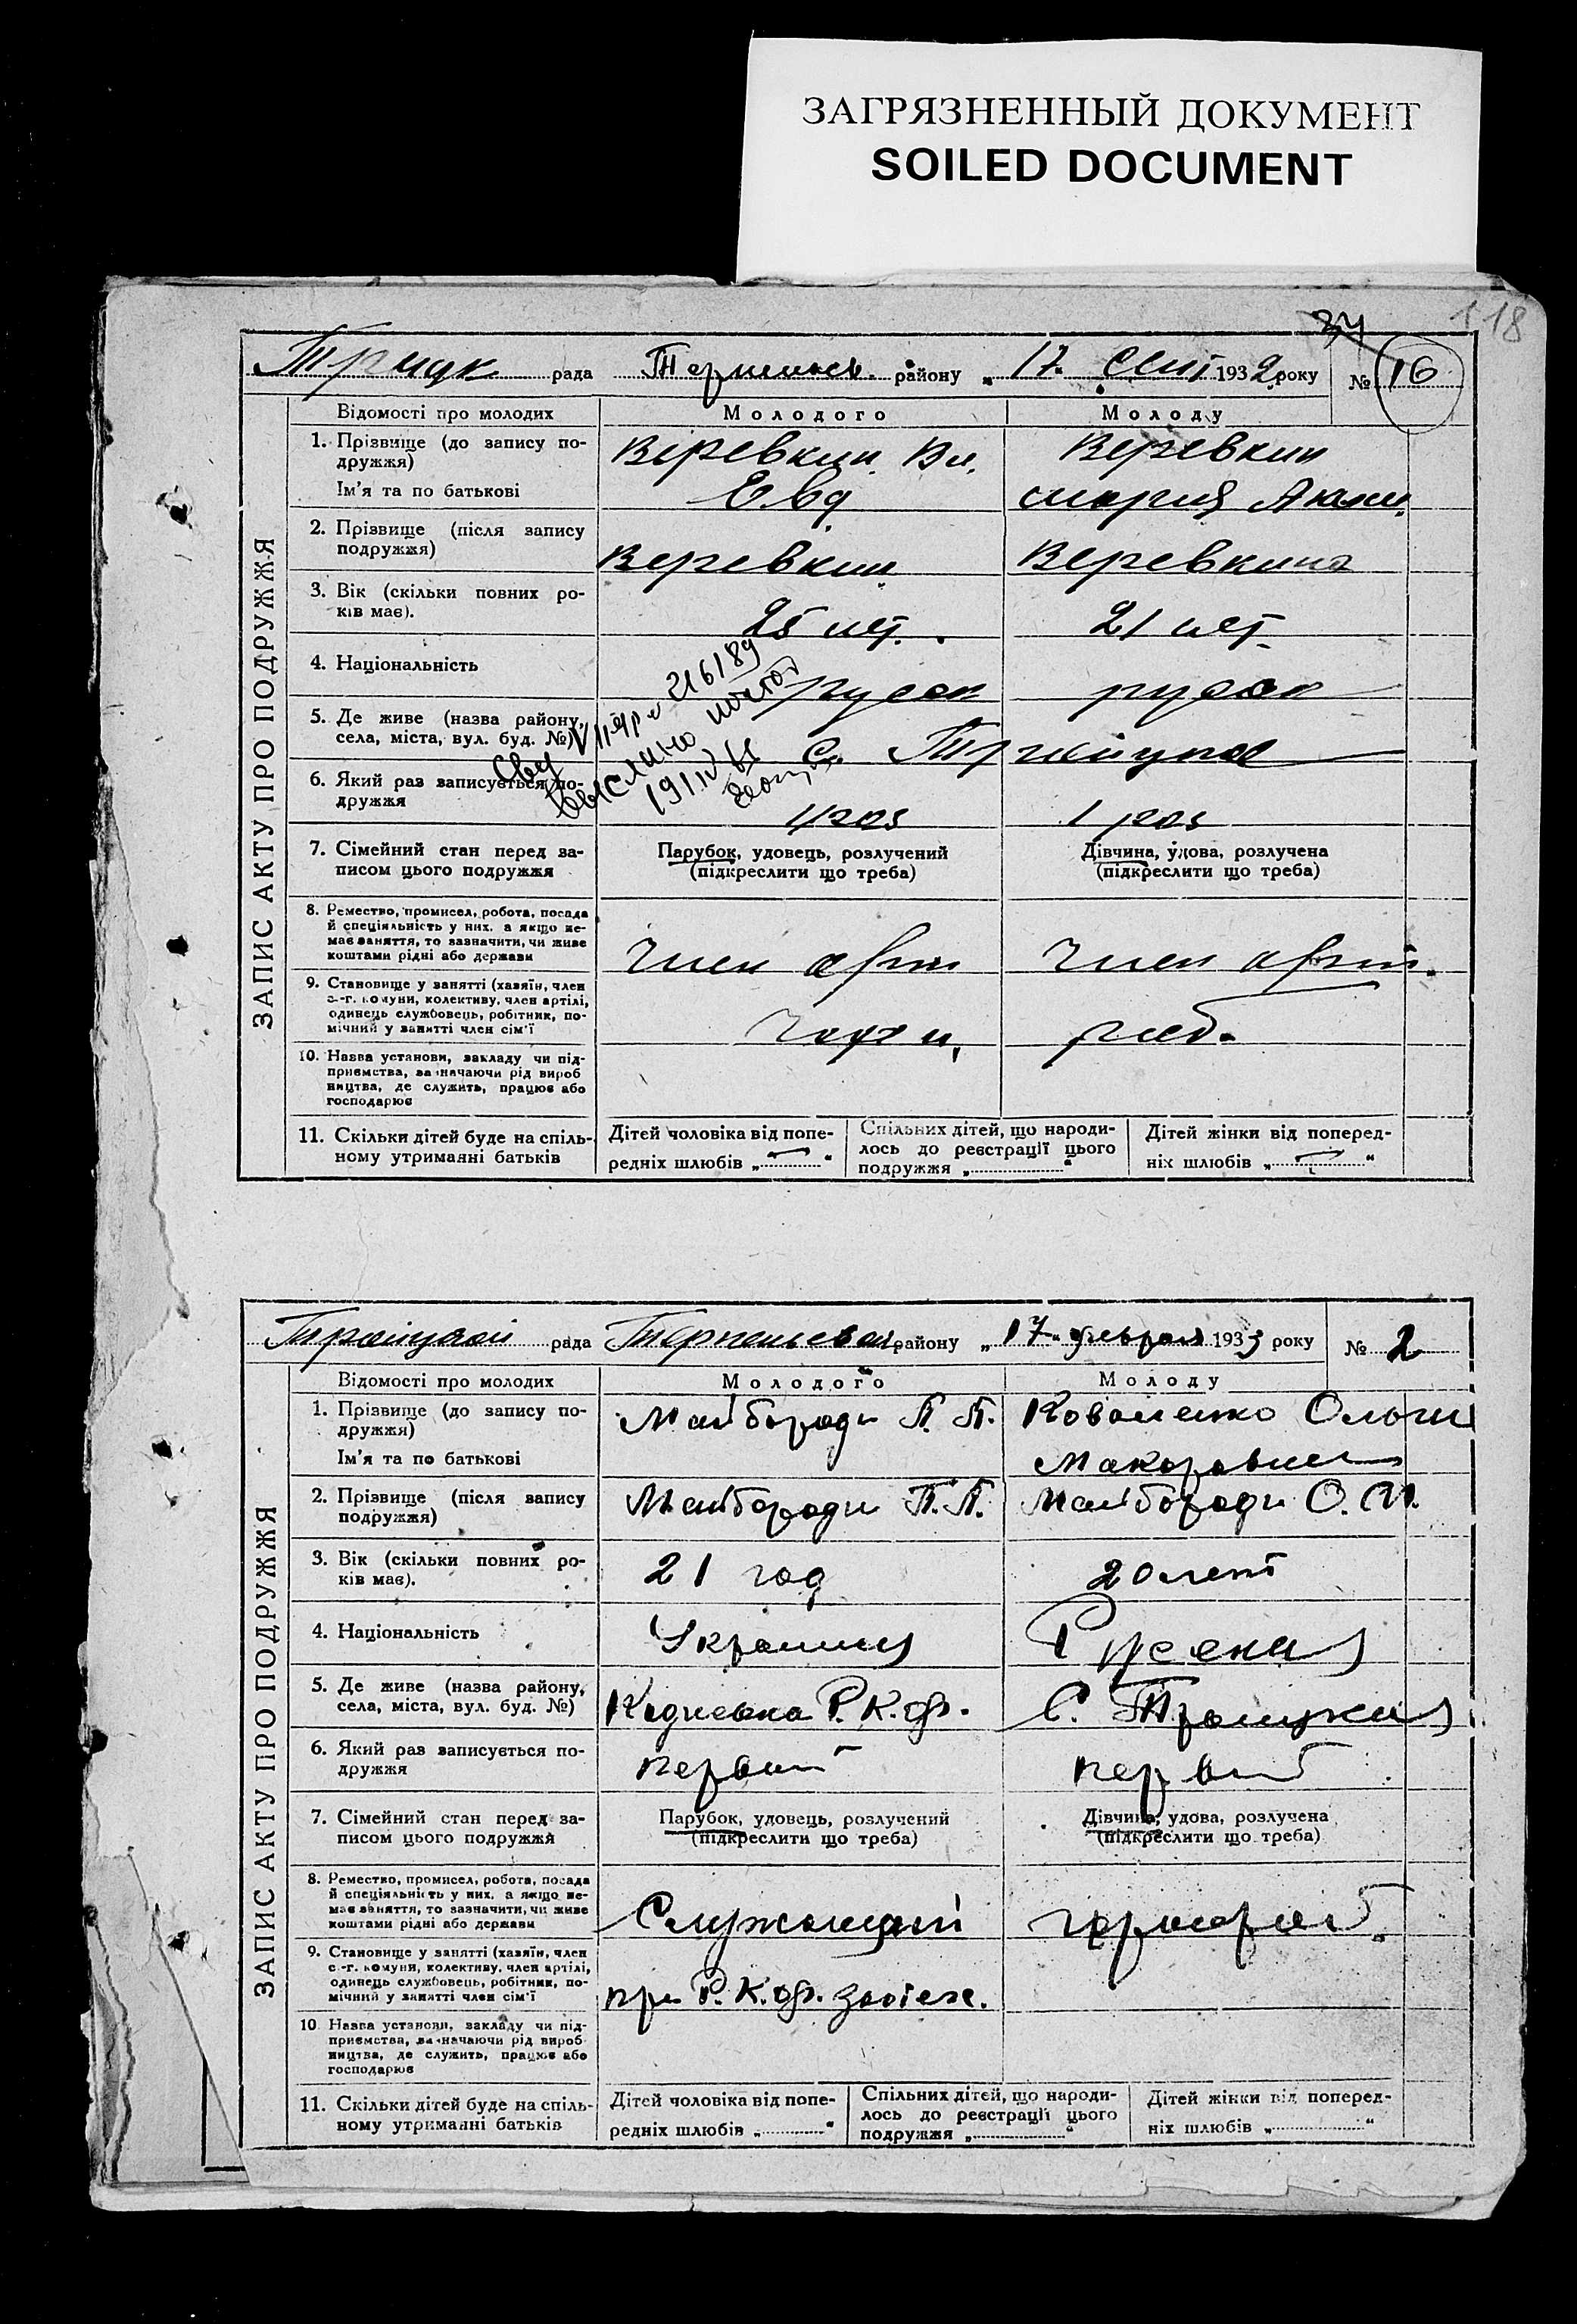 ЗАГРЯЗНЕННЫЙ ДОКУМЕНТ
SOILED DOCUMENT
118
34
рада району „17" Сент 1932 року № 16
ЗАПИС АКТУ ПРО ПОДРУЖЖЯ
Відомості про молодих Молодого Молоду
1. Прізвище (до запису по-
дружжя)
Ім'я та по батькові
Веревкин Вл. Веревкин
Евд Мария Аким.
2. Прізвище (після запису
подружжя)
Веревкин Веревкина
3. Вік (скільки повних ро-
ків має).
25 лет. 21 лет
4. Національність
русск русск
5. Де живе (назва району,
села, міста, вул. буд. №)
с. Троицкое
6. Який раз записується по-
дружжя
1 раз 1 раз
216189
выслано почтой
7. Сімейний стан перед за-
писом цього подружжя
Парубок, удовець, розлучений
(підкреслити що треба)
Дівчина, удова, розлучена
(підкреслити що треба)
8. Ремество, промисел, робота, посада
й спеціяльність у них, а якщо не-
має заняття, то зазначити, чи живе
коштами рідні або держави
Член арт Член арт.
9. Становище у занятті (хазяїн, член
с.-г. комуни, колективу, член артілі,
одинець службовець, робітник, по-
мічний у занятті член сім'ї
10. Назва установи, закладу чи під-
приємства, зазначаючи рід вироб
ництва, де служить, працює або
господарює
11. Скільки дітей буде на спіль-
ному утриманні батьків
Дітей чоловіка від попе-
редніх шлюбів „ — "
Спільних дітей, що народи-
лось до реєстрації цього
подружжя „ "
Дітей жінки від поперед-
ніх шлюбів „ — "
Троицкой рада району „17" февраля 1933 року № 2
ЗАПИС АКТУ ПРО ПОДРУЖЖЯ
Відомості про молодих Молодого Молоду
1. Прізвище (до запису по-
дружжя)
Ім'я та по батькові
Майбороди П. П. Коваленко Ольги
Макаровны
2. Прізвище (після запису
подружжя)
Майбороди П. П. Майбороди О. М.
3. Вік (скільки повних ро-
ків має).
21 год 20 лет
4. Національність
Украинец Русская
5. Де живе (назва району,
села, міста, вул. буд. №)
С. Троицкая
6. Який раз записується по-
дружжя
первый первый
7. Сімейний стан перед за-
писом цього подружжя
Парубок, удовець, розлучений
(підкреслити що треба)
Дівчина, удова, розлучена
(підкреслити що треба)
8. Ремество, промисел, робота, посада
й спеціяльність у них, а якщо не-
має заняття, то зазначити, чи живе
коштами рідні або держави
Служащий
9. Становище у занятті (хазяїн, член
с.-г. комуни, колективу, член артілі,
одинець службовець, робітник, по-
мічний у занятті член сім'ї
при
10. Назва установи, закладу чи під-
приємства, зазначаючи рід вироб
ництва, де служить, працює або
господарює
11. Скільки дітей буде на спіль-
ному утриманні батьків
Дітей чоловіка від попе-
редніх шлюбів „ "
Спільних дітей, що народи-
лось до реєстрації цього
подружжя „ "
Дітей жінки від поперед-
ніх шлюбів „ "